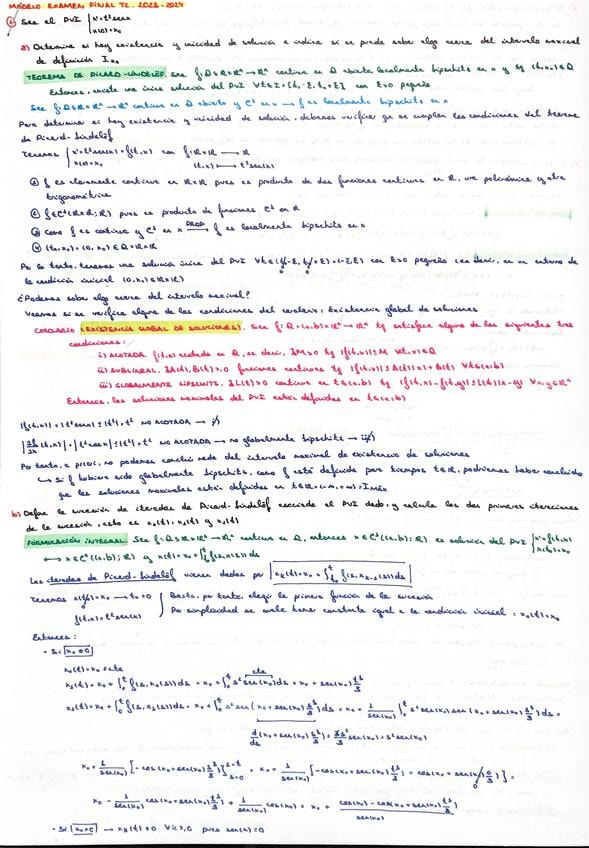 MODELO EXAMEN FINAL T2. 2023-2024
① Sea el PVI { x'=t²senx
x(0)=x₀
a) Determina si hay existencia y unicidad de solución e indica si se puede saber algo acerca del intervalo maximal
de definición I x₀
TEOREMA DE PICARD-LINDELÖF. Sea f: Ω⊆R×Rⁿ → Rⁿ continua en Ω abierto, localmente lipschitz en x y tq (t₀,x₀)∈Ω
Entonces, existe una única solución del PVI ∀t∈I=[t₀-ε,t₀+ε] con ε>0 pequeño
Sea f: Ω⊆R×Rⁿ → Rⁿ continua en Ω abierto y C¹ en x ⟶ f es localmente lipschitz en x
Para determinar si hay existencia y unicidad de solución, debemos verificar que se cumplen las condiciones del teorema
de Picard-Lindelöf
Tenemos { x'=t²sen(x)=f(t,x) con f: R×R ⟶ R
x(0)=x₀ (t,x) ⟶ t²sen(x)
① f es claramente continua en R×R pues es producto de dos funciones continuas en R, una polinómica y otra
trigonométrica
② f∈C¹(R×R; R) pues es producto de funciones C¹ en R
③ Como f es continua y C¹ en x ⟶ PROP f es localmente lipschitz en x
④ (t₀,x₀)=(0,x₀)∈Ω=R×R
Por lo tanto, tenemos una solución única del PVI ∀t∈(t₀-ε,t₀+ε)=(-ε,ε) con ε>0 pequeño (es decir, en un entorno de
la condición inicial (0,x₀)∈R×R)
¿Podemos saber algo acerca del intervalo maximal?
Veamos si se verifica alguna de las condiciones del corolario: Existencia global de soluciones
COROLARIO (EXISTENCIA GLOBAL DE SOLUCIONES). Sea f: Ω=(a,b)×Rⁿ → Rⁿ tq satisface alguna de las siguientes tres
condiciones:
i) ACOTADA. f(t,x) acotada en Ω, es decir, ∃M>0 tq |f(t,x)|≤M ∀(t,x)∈Ω
ii) SUBLINEAL. ∃A(t),B(t)>0 funciones continuas tq |f(t,x)|≤A(t)|x|+B(t) ∀t∈(a,b)
iii) GLOBALMENTE LIPSCHITZ. ∃L(t)>0 continua en t∈(a,b) tq |f(t,x)-f(t,y)|≤L(t)|x-y| ∀x,y∈Rⁿ
Entonces, las soluciones maximales del PVI están definidas en t∈(a,b)
|f(t,x)|=|t²senx|≤|t²|=t² NO ACOTADA ⟶ i)
|∂f/∂x (t,x)|=|t²cosx|≤|t²|=t² NO ACOTADA ⟶ no globalmente lipschitz ⟶ iii)
Por tanto, a priori, no podemos concluir nada del intervalo maximal de existencia de soluciones
↳ Si f hubiera sido globalmente lipschitz, como f está definida para tiempos t∈R, podríamos haber concluido
que las soluciones maximales están definidas en t∈R=(-∞,+∞)=Imáx
b) Define la sucesión de iteradas de Picard-Lindelöf asociada al PVI dado, y calcula las dos primeras iteraciones
de la sucesión, esto es x₀(t), x₁(t) y x₂(t)
FORMULACIÓN INTEGRAL. Sea f: Ω⊆R×Rⁿ → Rⁿ continua en Ω, entonces x∈C¹((a,b); R) es solución del PVI { x'=f(t,x)
x(t₀)=x₀
⟷ x∈C⁰((a,b); R) y x(t)=x₀+∫ f(s,x(s))ds
Las iteradas de Picard-Lindelöf vienen dadas por xₖ(t)=x₀+∫ f(s,xₖ₋₁(s))ds
Tenemos x(0)=x₀ ⟶ t₀=0 } Basta, por tanto, elegir la primera función de la sucesión
f(t,x)=t²sen(x) Por simplicidad se suele tomar constante igual a la condición inicial: x₀(t)=x₀
Entonces:
- Si x₀≠0
x₀(t)=x₀ ≡cte
x₁(t)=x₀+∫₀ᵗ f(s,x₀(s))ds = x₀+∫₀ᵗ s²sen(x₀)ds = x₀+sen(x₀)t³/3
x₂(t)=x₀+∫₀ᵗ f(s,x₁(s))ds = x₀+∫₀ᵗ s²sen(x₀+sen(x₀)s³/3)ds = x₀+ 1/sen(x₀) ∫₀ᵗ s²sen(x₀)sen(x₀+sen(x₀)s³/3)ds =
d/ds (x₀+sen(x₀)s³/3)=3s²/3 sen(x₀)=s²sen(x₀)
x₀+ 1/sen(x₀) [-cos(x₀+sen(x₀)s³/3)] s=t s=0 = x₀+ 1/sen(x₀) [-cos(x₀+sen(x₀)t³/3)+cos(x₀+sen(x₀)0/3)] =
x₀ - 1/sen(x₀) cos(x₀+sen(x₀)t³/3)+ 1/sen(x₀) cos(x₀) = x₀ + (cos(x₀)-cos(x₀+sen(x₀)t³/3))/sen(x₀)
- Si x₀=0 ⟶ xₖ(t)=0 ∀k≥0 pues sen(0)=0